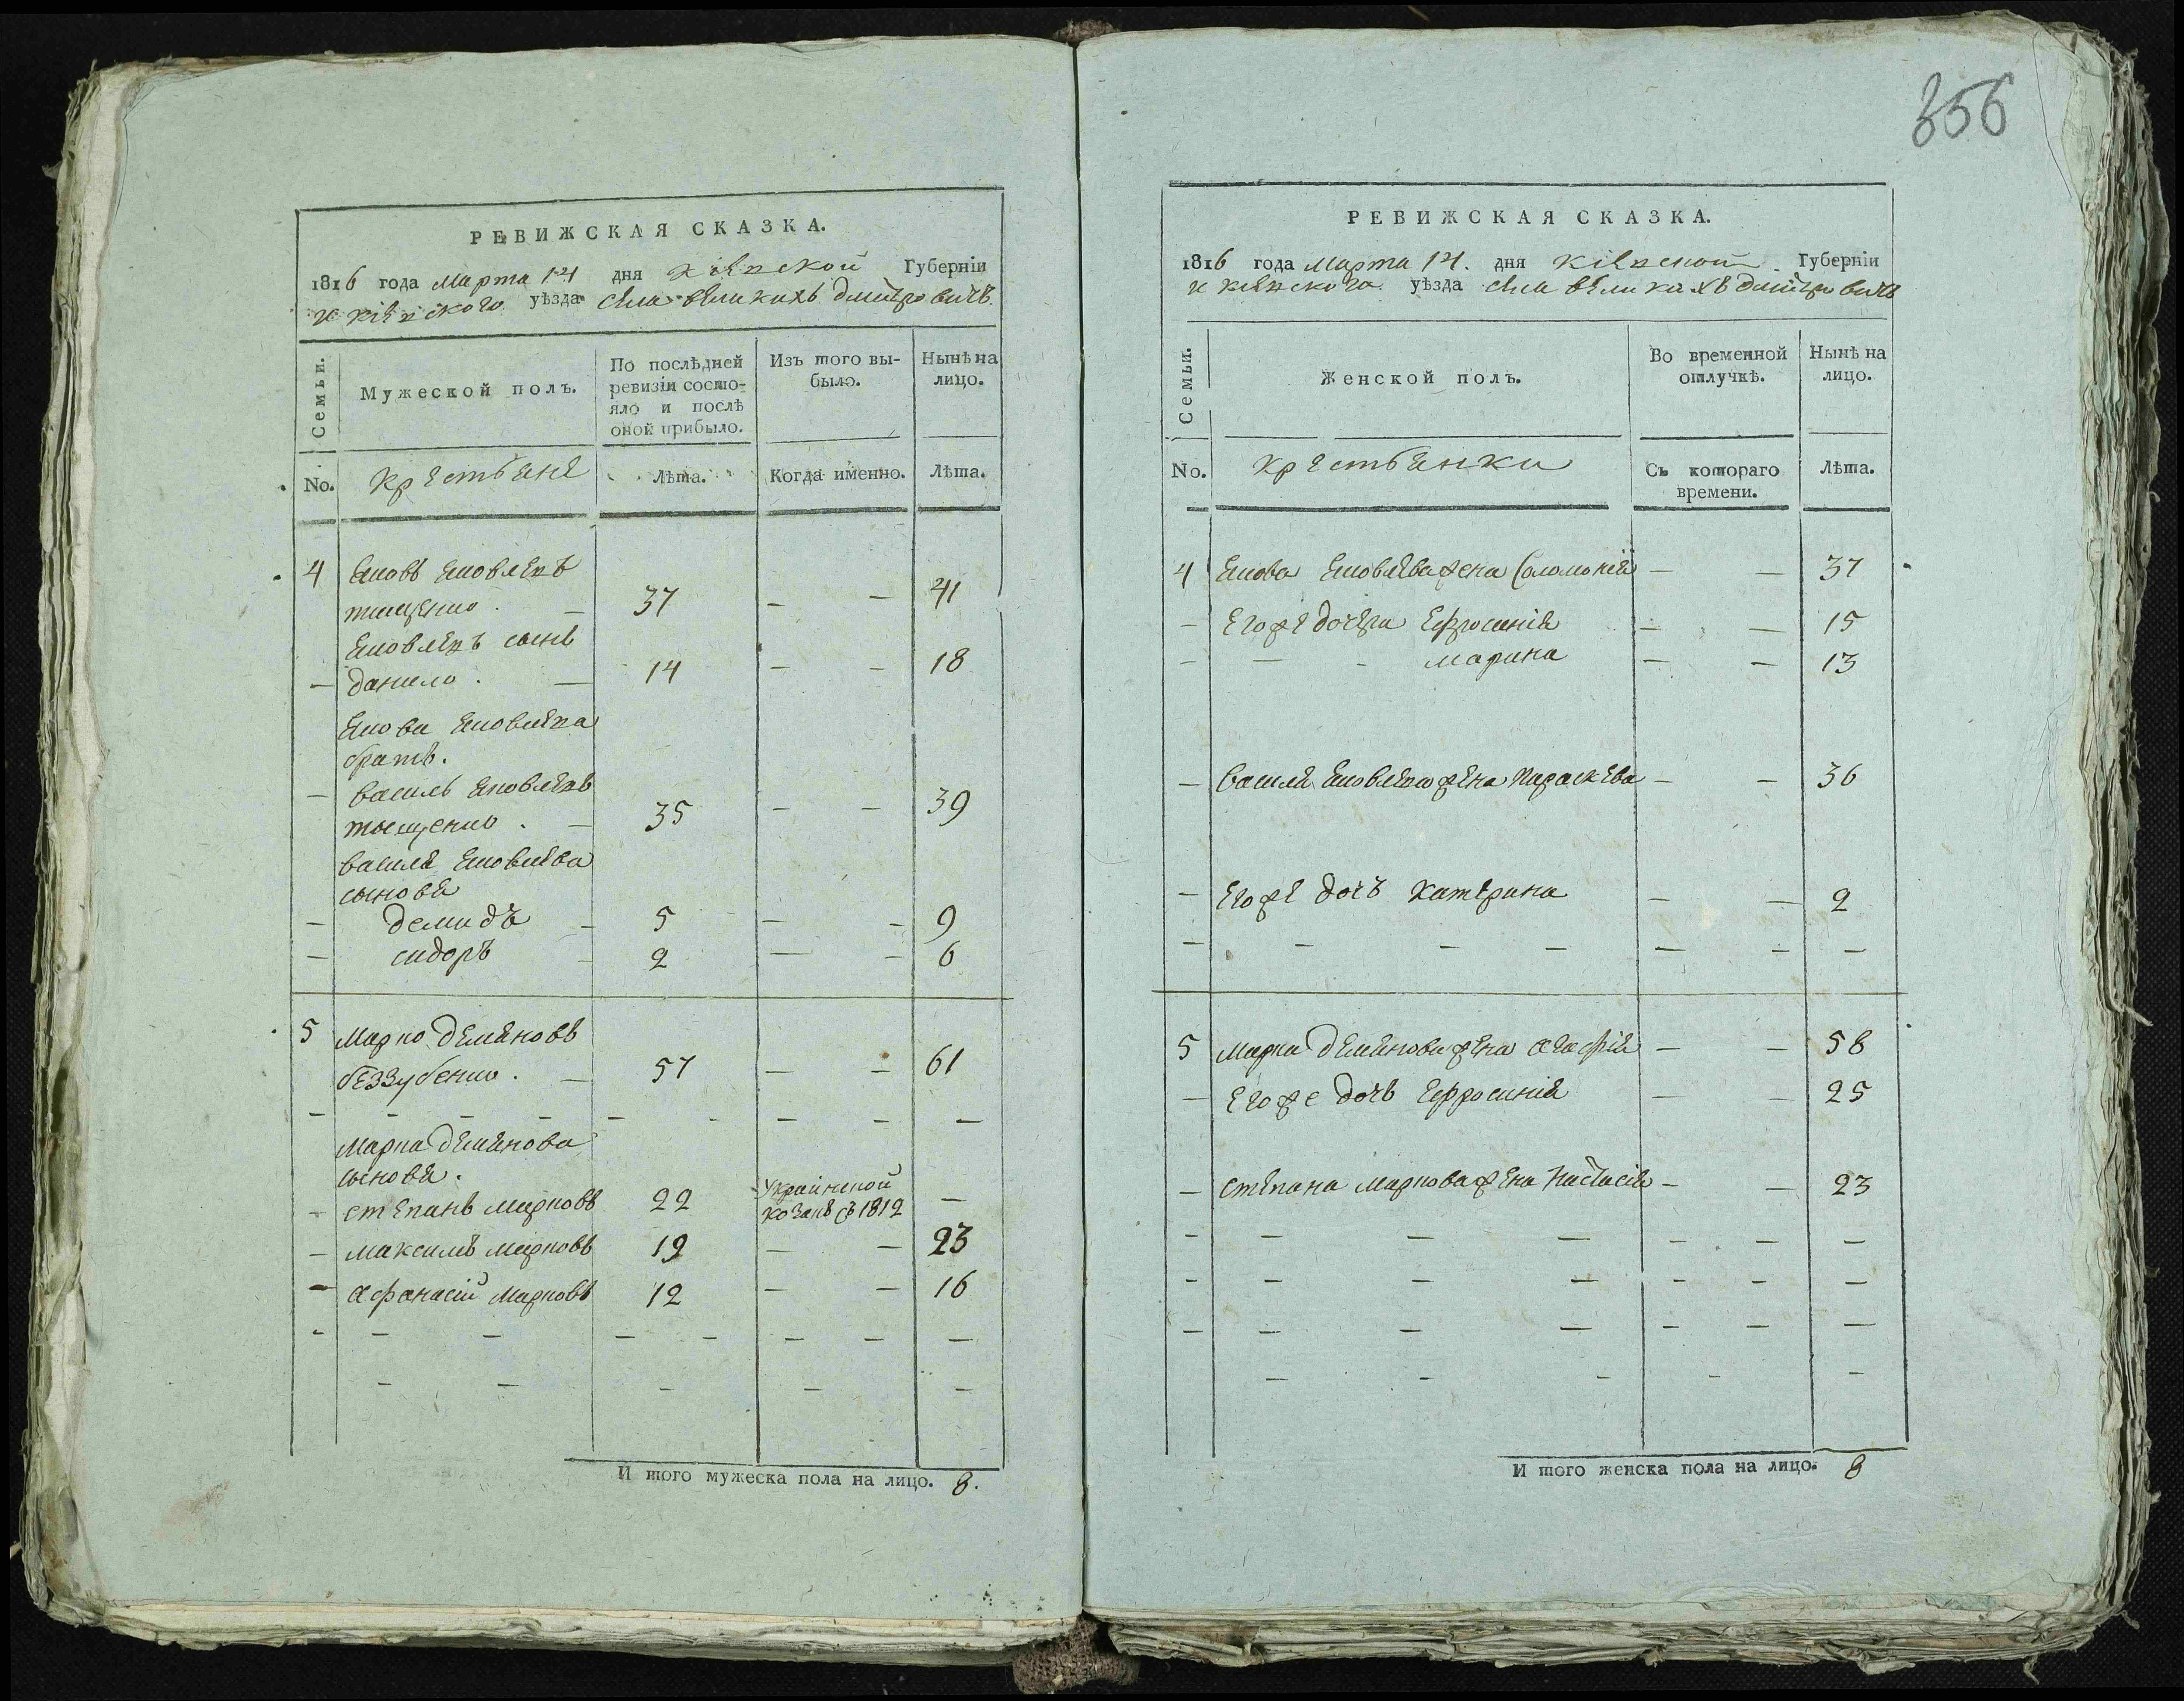 356
РЕВИЖСКАЯ СКАЗКА.
1816 года Марта 14 дня Кіевской Губерніи
и Кіевского уѣзда села Великихъ Дмитровичъ
Семьи.
Мужеской полъ.
По послѣдней
ревизіи состо-
яло и послѣ
оной прибыло.
Изъ того вы-
было.
Нынѣ на
лицо.
No. Крестьяне Лѣта. Когда именно. Лѣта.
4 Яковъ Яковлевъ
тищенко. — 37 — — 41
Яковлевъ сынъ
— данило. — 14 — — 18
Якова Яковлева
братъ.
— василь Яковлевъ
тыщенко. — 35 — — 39
василя Яковлева
сыновя
— демидъ — 5 — — 9
— сидоръ — 2 — — 6
5 Марко Демяновъ
беззубенко. — 57 — — 61
— — — — — — — — —
Марка Демянова
сыновя.
— степанъ Марковъ 22 Украинской —
козакъ съ 1812
— максимъ Марковъ 19 — — 23
— афанасій Марковъ 12 — — 16
— — — — — — — —
— — — — —
И того мужеска пола на лицо. 8.
РЕВИЖСКАЯ СКАЗКА.
1816 года Марта 14. дня Кіевской Губерніи
и Кіевского уѣзда села Великихъ Дмитровичъ
Семьи.
Женской полъ.
Во временной
отлучкѣ.
Нынѣ на
лицо.
No. Крестьянки Съ котораго
времени.
Лѣта.
4 Якова Яковлева жена Соломонія — — 37
— Егоже дочери Ефросинія — — 15
— — - марина — — 13
— василя Яковлева жена Параскева — — 36
— Егоже дочь Катерина — — 2
— — — — — — —
5 Марка Демянова жена Агафія — — 58
— Егоже дочь Ефросинія — — 25
— степана Маркова жена Настасія — — 23
— — — — — — —
— — — — — — —
— — — — — — —
— — — — —
И того женска пола на лицо. 8